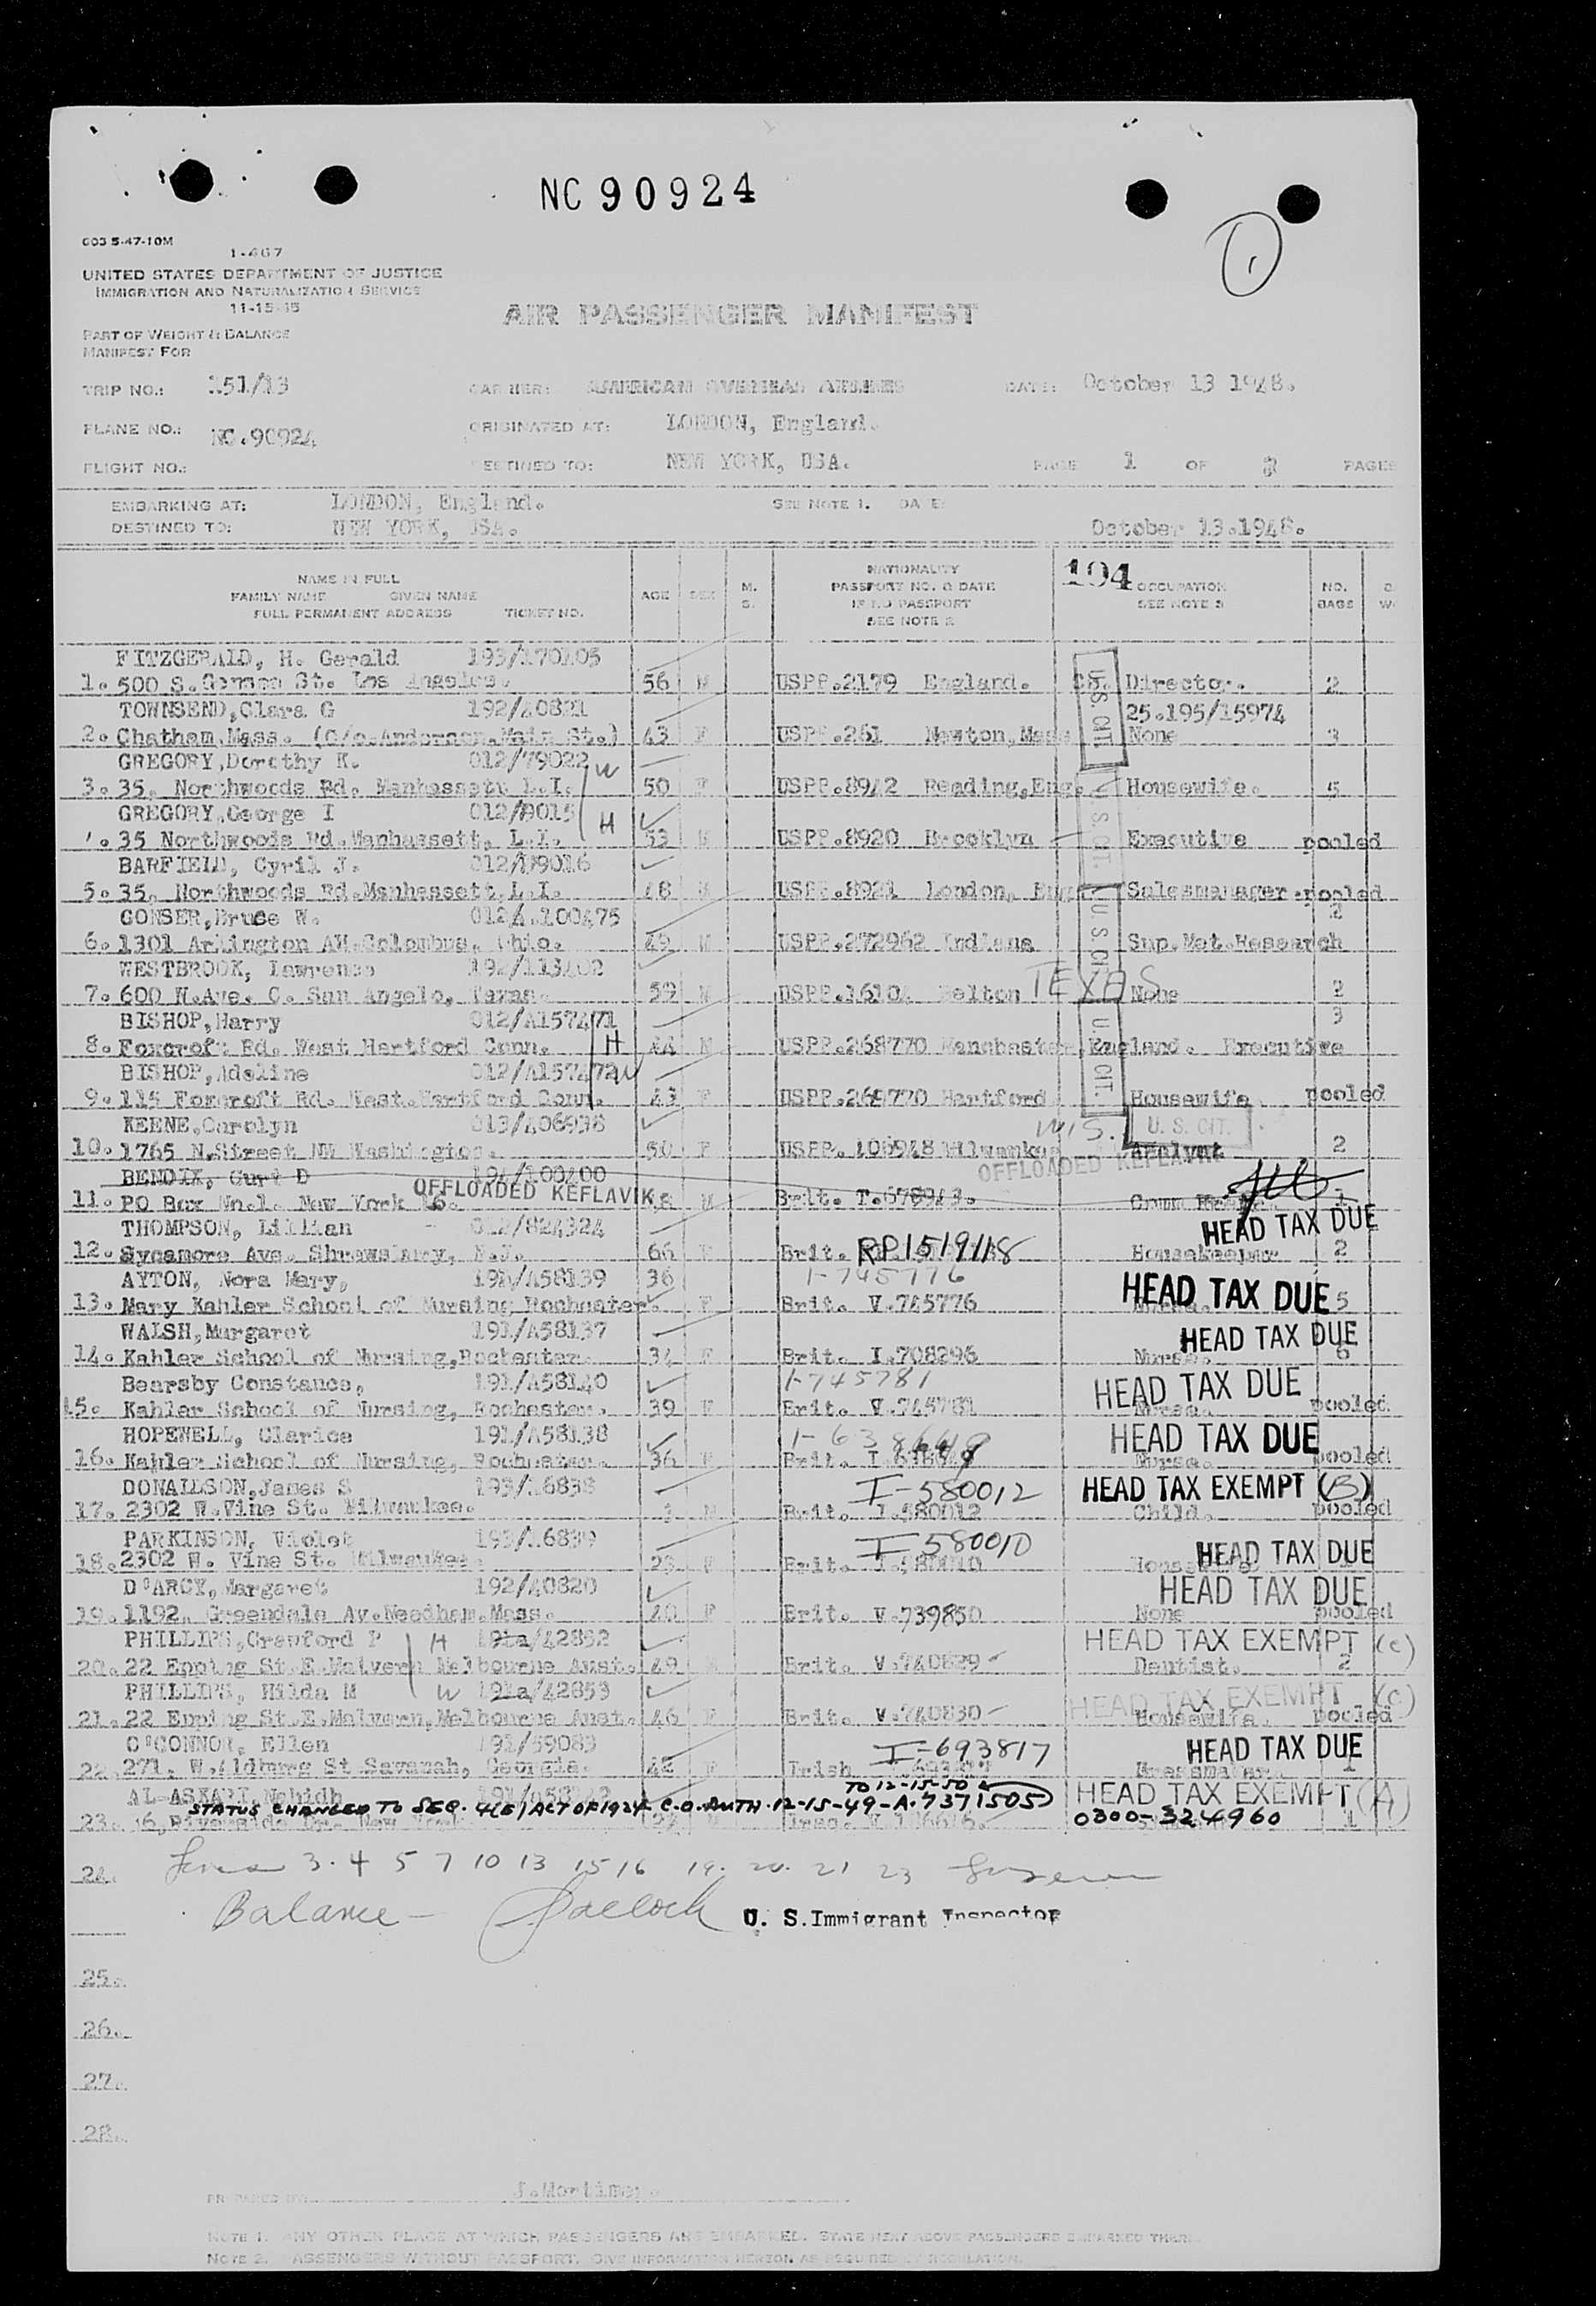 NC 90924
1
603 5-47-10M
1-467
UNITED STATES DEPARTMENT OF JUSTICE
IMMIGRATION AND NATURALIZATION SERVICE
11-15-45
AIR PASSENGER MANIFEST
PART OF WEIGHT & BALANCE
MANIFEST FOR
TRIP NO.: 151/13 CARRIER: AMERICAN OVERSEAS AIRLINES DATE: October 13 1948.
PLANE NO.: NC.90924 ORIGINATED AT: LONDON, England.
FLIGHT NO.: DESTINED TO: NEW YORK, USA. PAGE 1 OF PAGES
EMBARKING AT: LONDON, England. SEE NOTE 1. DATE
DESTINED TO: NEW YORK, USA. October 13.1948.
NAME IN FULL NATIONALITY 194
FAMILY NAME GIVEN NAME AGE SEX M. S. PASSPORT NO. & DATE OCCUPATION NO.
FULL PERMANENT ADDRESS TICKET NO. IF NO PASSPORT SEE NOTE 3 BAGS
SEE NOTE 2
FITZGERALD, H. Gerald 193/170105
1. 500 S. St. Los Angeles. 56 M USPP.2179 England. U.S. CIT. Director. 2
TOWNSEND,Clara G 192/40821 25.195/15974
2. Chatham,Mass. (C/o.Anderson,Main St.) 43 F USPP.261 Newton,Mass None 3
GREGORY,Dorothy K. 012/79022 W
3. 35, Northwoods Rd. Manhassett L.I. 50 F USPP.8942 Reading,Eng. U.S. CIT. Housewife. 5
GREGORY,George I 012/9015 H
35 Northwoods Rd.Manhassett, L.I. 53 M USPP.8920 Brooklyn Executive pooled
BARFIELD, Cyril J. 012/19016
5. 35, Northwoods Rd.Manhassett,L.I. 48 M USPP.8921 London, Eng Salesmanager pooled
GONSER,Bruce W. 012/A.100475 2
6. 1301 Arlington AV.Colombus, Ohio. 49 M USPP.272962 Indiana U.S. CIT. Sup.Met.Research
WESTBROOK, Lawrence 192/113402
7. 600 W.Ave. C. San Angelo, Texas. 59 M USPP.1610 Belton TEXAS None 2
BISHOP,Harry 012/A157471 3
8. Foxcroft Rd. West Hartford Conn. H 44 M USPP.268770 Manchester,England. Executive
BISHOP,Adeline 012/A157472 W
9. 115 Foxcroft Rd. West.Hartford Conn. 43 F USPP.269770 Hartford U.S. CIT. Housewife pooled
KEENE,Carolyn 013/406938 WIS. U. S. CIT.
10. 1765 N.Street NW Washington. 50 F USPP. 106948 Milwaukee Analyst 2
BENDIX, Curt D 194/100400 OFFLOADED KEFLAVIK
11. PO Box No.1. New York 16. OFFLOADED KEFLAVIK M Brit. T.678943. 1
THOMPSON, Lillian 012/824324 HEAD TAX DUE
12. Sycamore Ave. Shrewsbury, N.J. 66 F Brit. RP1519118 Housekeeper 2
AYTON, Nora Mary, 191/A58139 36 I-745776
13. Mary Kahler School of Nursing Rochester. F Brit. V.745776 HEAD TAX DUE 5
WALSH,Margaret 191/A58137 HEAD TAX DUE
14. Kahler School of Nursing,Rochester. 34 F Brit. I.708296 Nurse. 6
Bearsby Constance, 191/A58140 I-745781 HEAD TAX DUE
15. Kahler School of Nursing, Rochester. 39 F Brit. V.745781 Nurse. pooled
HOPEWELL, Clarice 191/A58138 HEAD TAX DUE
16. Kahler School of Nursing, Rochester. 36 F Brit. Nurse. pooled
DONAILDSON,James S 193/16838 I-580012 HEAD TAX EXEMPT (B)
17. 2302 W.Vine St. Milwaukee. M Brit. I.580012 Child. pooled
PARKINSON, Violet 193/16839 I 580010 HEAD TAX DUE
18. 2302 W. Vine St. Milwaukee. F Brit. I.580010
D'ARCY, Margaret 192/40820 HEAD TAX DUE
19. 1192, Greendale Av.Needham.Mass. 40 F Brit. V.739850 None pooled
PHILLIPS,Crawford P H 191a/42852 HEAD TAX EXEMPT (c)
20. 22 Epping St.E.Malvern Melbourne Aust. 49 Brit. V.740829 Dentist. 2
PHILLIPS, Hilda M W 191a/42853 HEAD TAX EXEMPT (c)
21. 22 Epping St.E.Malvern,Melbourne Aust. 46 F Brit. V.740830 Housewife. pooled
O'CONNOR, Ellen 191/59083 I-693817 HEAD TAX DUE
22. 271, W. St Savanah, Georgia. 42 F Irish Dressmaker. 1
AL-ASKARI, TO 12-15-50 HEAD TAX EXEMPT (A)
STATUS CHANGED TO SEC. 4(E) ACT OF 1924 C.O. AUTH. 12-15-49-A-7371505 0300-324960
23. Riverside Dr. New York 1
24. 3. 4 5 7 10 13 15 16 19. 20. 21 23
Balance - U. S.Immigrant Inspector
25.
26.
27.
28.
PREPARED BY J.Mortimer.
NOTE 1. ANY OTHER PLACE AT WHICH PASSENGERS ARE EMBARKED. STATE NEXT ABOVE PASSENGERS EMBARKED THERE.
NOTE 2. PASSENGERS WITHOUT PASSPORT, GIVE INFORMATION HEREON AS REQUIRED BY REGULATION.